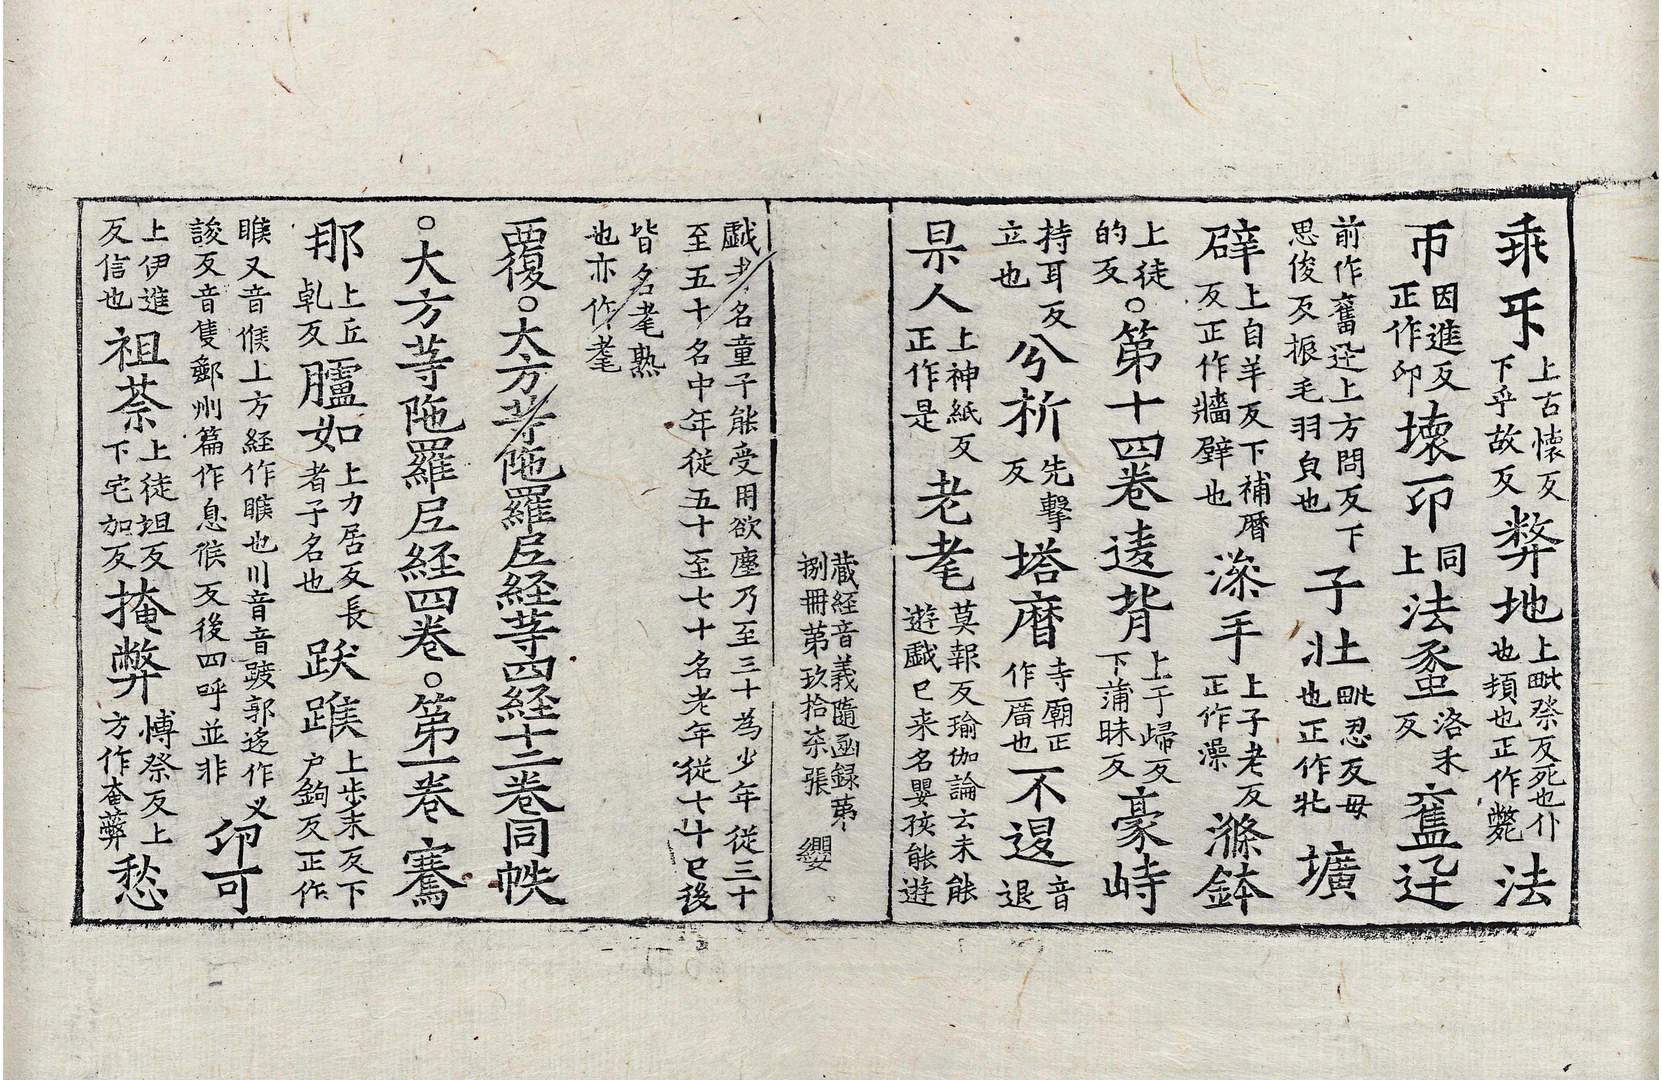 乖𠂔上古懷反下乎故反弊地上毗祭反死也仆也頓也正作斃法
帀因進反正作印壞印同上法蠡洛禾反奮迅
前作奮迅上方問反下思俊反振毛羽負也子壯毗忍反母也正作牝壙
辟上自羊反下補曆反正作牆壁也濢手上子老反正作澡滌鉢
上徒的反。第十四卷逺背上于歸反下蒲昧反豪峙
持耳反立也兮祈先擊反塔𢉖寺廟正作庿也不𨓆音退
杲人上神紙反正作是老耄莫報反瑜伽論云未能遊戲已来名嬰孩能遊
藏経音義隨函録苐捌冊苐玖拾柒張 纓
戲者名童子能受用欲塵乃至三十為少年從三十至五十名中年從五十至七十名老年從七十已後
皆名耄熟也亦作耄
覆。大方等陁羅尼経等四経十二卷同帙
。大方等陁羅尼経四卷。第一卷 騫
那上丘乹反臚如上力居反長者子名也跋䠦上步末反下户鉤反正作
睺又音䫛上方経作睺也川音音䟦郭迻作㕛䛀反音隻鄴州篇作息𠋫反後四呼並非印可
上伊進反信也祖荼上徒坥反下宅加反掩弊上愽祭反上方作奄䔽愁